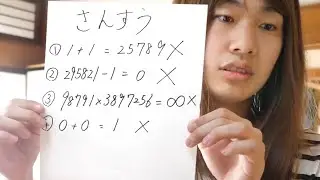 さんすう
① 1+1=25789 X
② 295821-1=0 X
③ 98791×3897256=00 X
④ 0+0=1 X